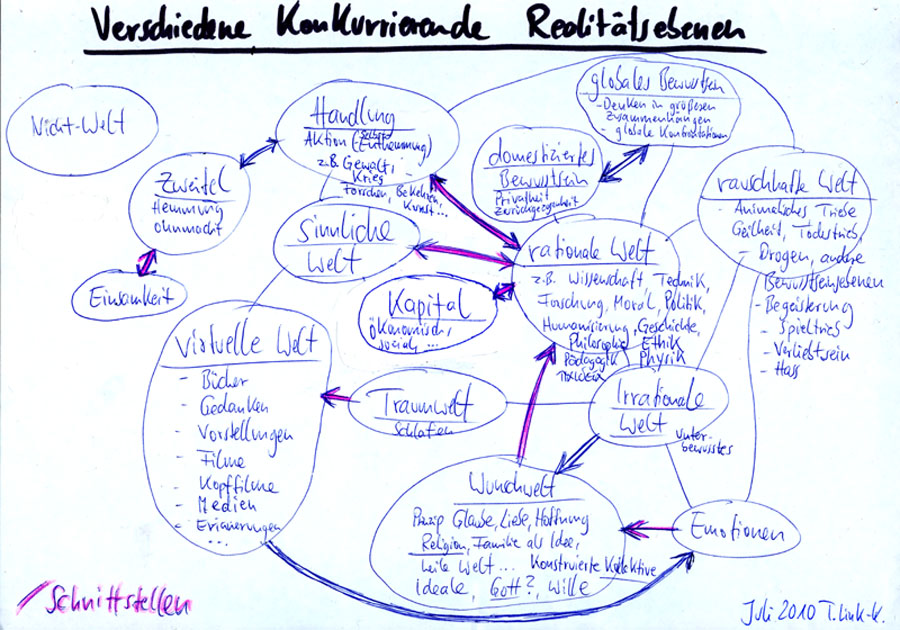 Verschiedene Konkurrierende Realitätsebenen
Nicht-Welt
Handlung
Aktion (Selbst
Enthemmung)
z.B. Gewalt,
Krieg
forschen, Bekehren,
Kunst...
globales Bewusstsein
- Denken in größeren
Zusammenhängen
- globale Konfrontationen
domestiziertes
Bewusstsein
Privatheit
Zurückgezogenheit
Zweifel
Hemmung
Ohnmacht
Einsamkeit
sinnliche
Welt
Kapital
ökonomisches
sozial, ...
rationale Welt
z.B. Wissenschaft, Technik,
Forschung, Moral, Politik,
Humanisierung, Geschichte,
Philosophie, Ethik
Pädagogik Physik
rauschhafte Welt
- Animalisches Triebe
Geilheit, Todestrieb,
- Drogen, andere
Bewusstseinsebenen
- Begeisterung
- Spieltrieb
- Verliebtsein
- Hass
virtuelle Welt
- Bücher
- Gedanken
- Vorstellungen
- Filme
- Kopffilme
- Medien
- Erinnerungen
...
Traumwelt
Schlafen
Irrationale
Welt
Unter-
bewusstes
Wunschwelt
Prinzip Glaube, Liebe, Hoffnung
Religion, Familie als Idee,
heile Welt ... Konstruierte Kollektive
Ideale, Gott?, Wille
Emotionen
Schnittstellen
Juli 2010 T. Link-K.